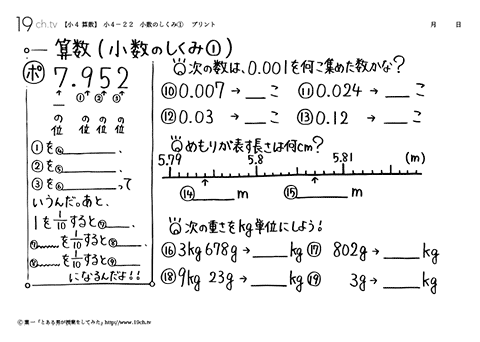 19ch.tv 【小4 算数】 小4-22 小数のしくみ① プリント 月 日
算数(小数のしくみ①)
ポ 7.952
① ② ③
の位 の位 の位 の位
①を④____、
②を⑤____、
③を⑥____って
いうんだ。あと、
1を1/10すると⑦____、
⑦____を1/10すると⑧____、
⑧____を1/10すると⑨____
になるんだよ!!
次の数は、0.001を何こ集めた数かな?
⑩0.007→___こ ⑪0.024→___こ
⑫0.03→___こ ⑬0.12→___こ
めもりが表す長さは何cm?
5.79 5.8 5.81 (m)
⑭____m ⑮____m
次の重さをkg単位にしよう!
⑯3kg678g→____kg ⑰802g→____kg
⑱9kg 23g→____kg ⑲3g→____kg
© 葉一「とある男が授業をしてみた」http://www.19ch.tv